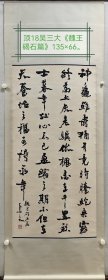 顶18吴三大《魏王
碣石篇》135×66。
神龜雖壽猶有竟時騰蛇乘霧
終為土灰老驥伏櫪志在千里烈
士暮年壯心不已盈縮之期不但在
天養怡之福可得永年